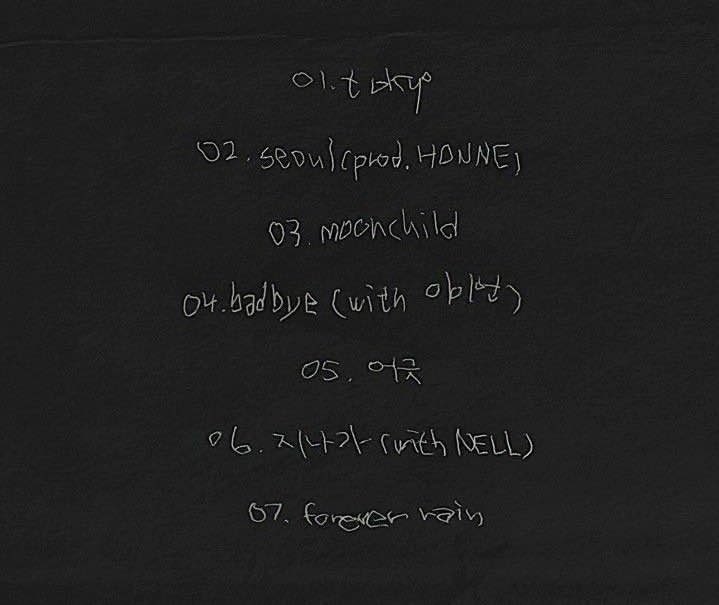 01. tokyo
02. seoul (prod. HONNE)
03. moonchild
04. badbye (with 이이언)
05. 어긋
06. 지나가 (with NELL)
07. forever rain